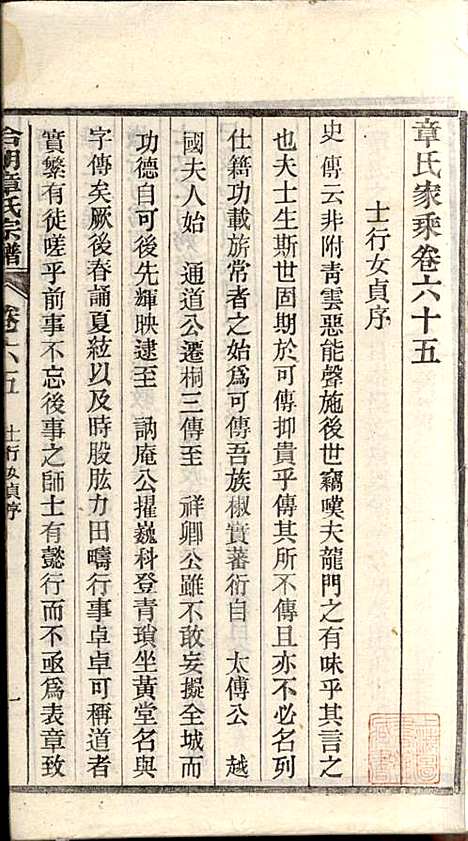 章氏家乘卷六十五
士行女貞序
史 傳云非附青雲惡能聲施後世竊嘆夫龍門之有味乎其言之
也夫士生斯世固期於可傳抑貴乎傳其所不傳且亦不必名列
仕籍功載旂常者之始爲可傳吾族椒實蕃衍自 太傅公 越
國夫人始 通道公遷桐三傳至 祥卿公雖不敢妄擬全城而
功德自可後先輝映逮至 訥庵公擢巍科登青瑣坐黃堂名與
字傳矣厥後春誦夏絃以及時股肱力田疇行事卓卓可稱道者
實繁有徒嗟乎前事不忘後事之師士有懿行而不亟爲表章致
章氏宗譜 卷六十五 士行女貞序 一